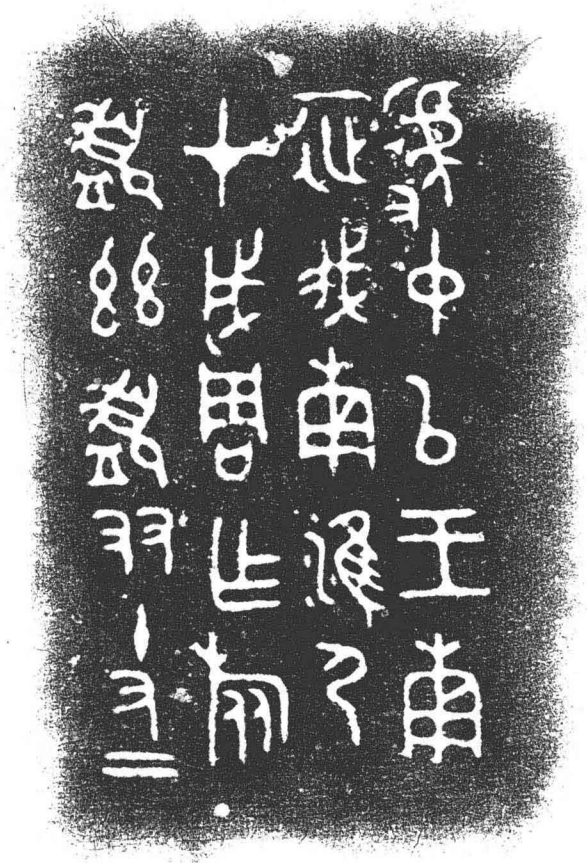 虢中以王南
征伐南淮尸
才成周乍旅
盨𢆶盨友十又二